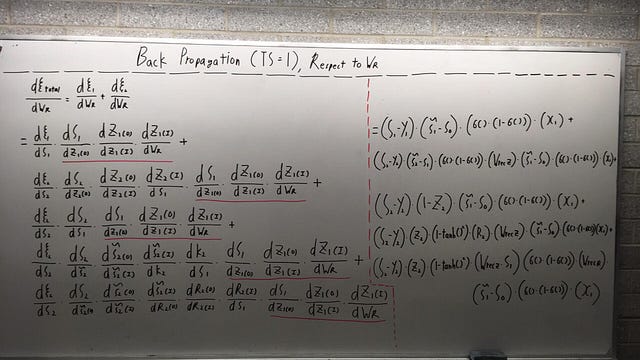 Back Propagation (TS=1), Respect to WR
dξtotal/dWR = dξ1/dWR + dξ2/dWR
= dξ1/dS1 · dS1/dZ1(O) · dZ1(O)/dZ1(I) · dZ1(I)/dWR +
dξ2/dS2 · dS2/dZ2(O) · dZ2(O)/dZ2(I) · dZ2(I)/dS1 · dS1/dZ1(O) · dZ1(O)/dZ1(I) · dZ1(I)/dWR +
dξ2/dS2 · dS2/dS1 · dS1/dZ1(O) · dZ1(O)/dZ1(I) · dZ1(I)/dWR +
dξ2/dS2 · dS2/dS̃2(O) · dS̃2(O)/dS̃2(I) · dS̃2(I)/dk2 · dk2/dS1 · dS1/dZ1(O) · dZ1(O)/dZ1(I) · dZ1(I)/dWR +
dξ2/dS2 · dS2/dS̃2(O) · dS̃2(O)/dS̃2(I) · dS̃2(I)/dR2(O) · dR2(O)/dR2(I) · dR2(I)/dS1 · dS1/dZ1(O) · dZ1(O)/dZ1(I) · dZ1(I)/dWR
=(S1-Y1)·(S̃1-S0)·(6()·(1-6()))·(X1) +
(S2-Y2)·(S̃2-S1)·(6()·(1-6()))·(WrecZ)·(S̃1-S0)·(6()·(1-6()))·(X1)+
(S2-Y2)·(1-Z2)·(S̃1-S0)·(6()·(1-6()))·(X1)+
(S2-Y2)·(Z2)·(1-tanh()²)·(R2)·(WrecZ)·(S̃1-S0)·(6()·(1-6()))(X1)+
(S2-Y2)·(Z2)·(1-tanh()²)·(WrecZ·S1)·(6()·(1-6()))(WrecR)·
(S̃1-S0)·(6()·(1-6()))·(X1)